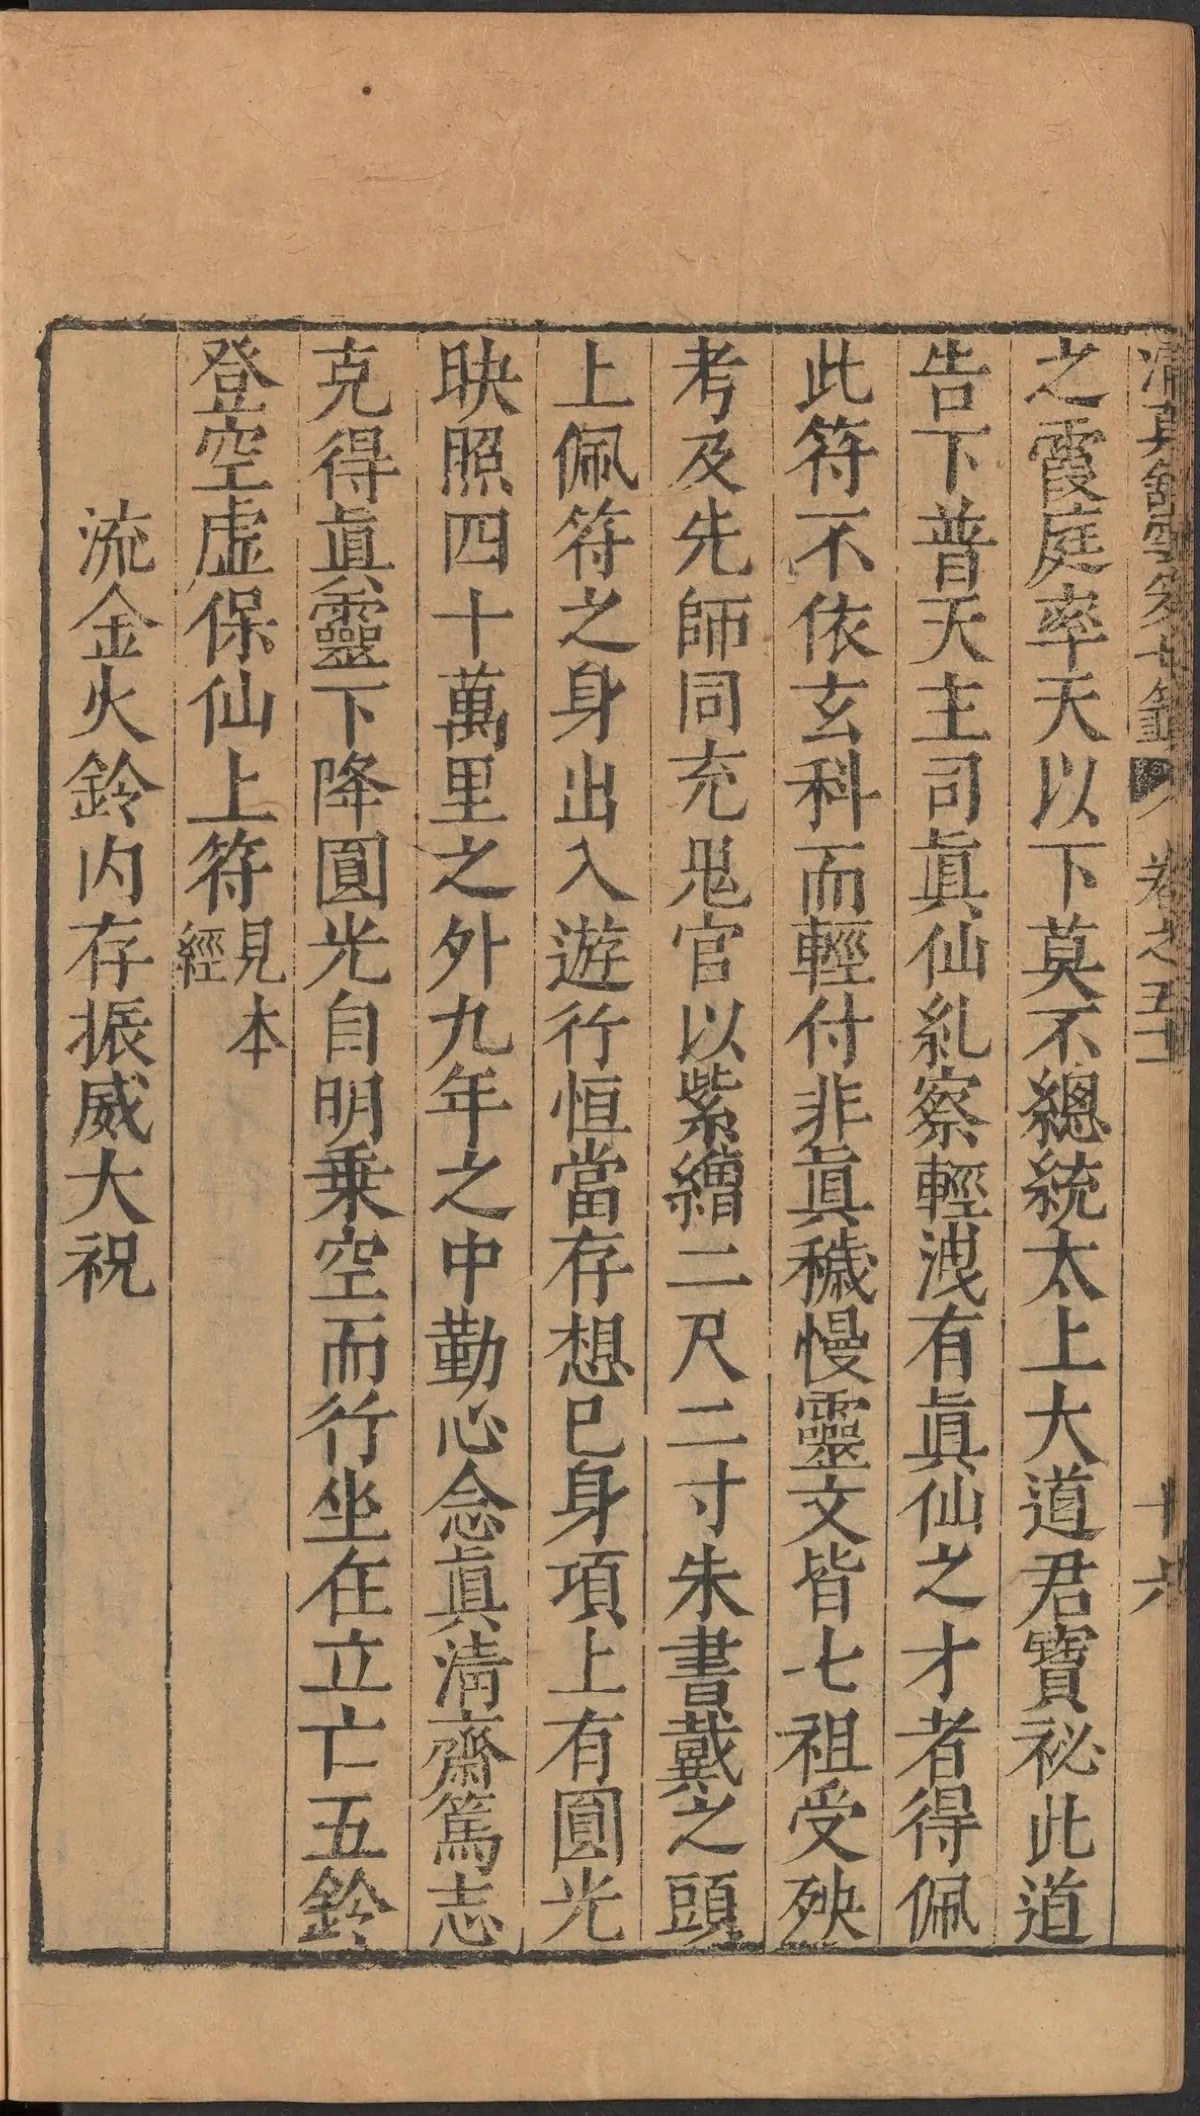 清真館雲笈七籤 卷之五十 十六
之霞庭率天以下莫不總統太上大道君寶祕此道
告下普天主司眞仙糺察輕洩有眞仙之才者得佩
此符不依玄科而輕付非眞穢慢靈文皆七祖受殃
考及先師同充鬼官以紫繒二尺二寸朱書戴之頭
上佩符之身出入遊行恒當存想已身項上有圓光
映照四十萬里之外九年之中勤心念眞淸齋篤志
克得眞靈下降圓光自明乗空而行坐在立亡五鈴
登空虛保仙上符見本經
流金火鈴内存振威大祝